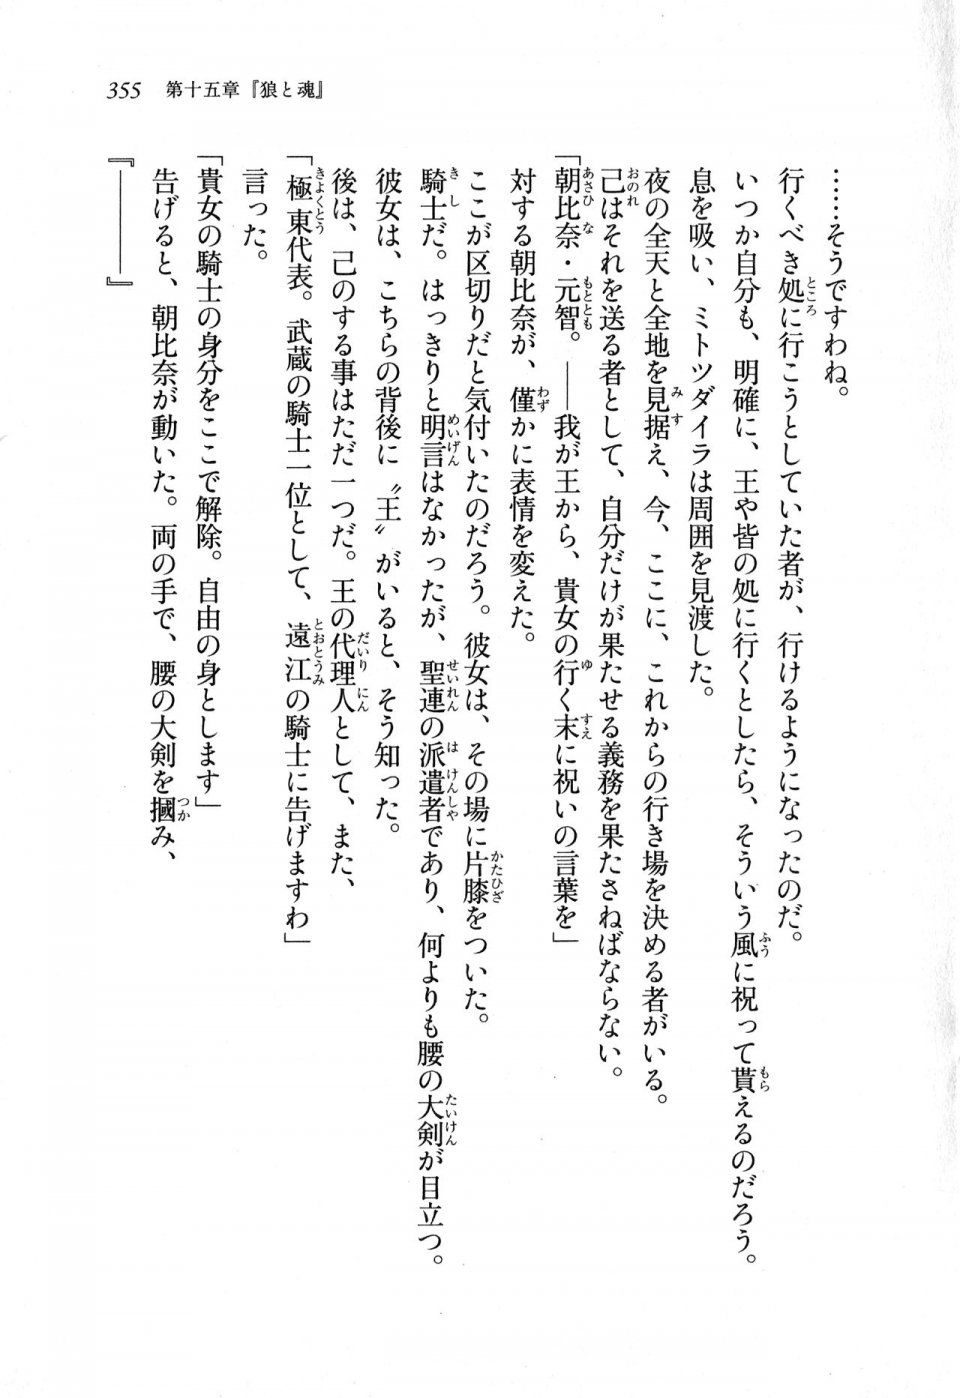 355　第十五章『狼と魂』
……そうですわね。
行くべき処に行こうとしていた者が、行けるようになったのだ。
いつか自分も、明確に、王や皆の処に行くとしたら、そういう風に祝って貰えるのだろう。
息を吸い、ミトツダイラは周囲を見渡した。
夜の全天と全地を見据え、今、ここに、これからの行き場を決める者がいる。
己はそれを送る者として、自分だけが果たせる義務を果たさねばならない。
「朝比奈・元智。――我が王から、貴女の行く末に祝いの言葉を」
対する朝比奈が、僅かに表情を変えた。
ここが区切りだと気付いたのだろう。彼女は、その場に片膝をついた。
騎士だ。はっきりと明言はなかったが、聖連の派遣者であり、何よりも腰の大剣が目立つ。
彼女は、こちらの背後に〝王〟がいると、そう知った。
後は、己のする事はただ一つだ。王の代理人として、また、
「極東代表。武蔵の騎士一位として、遠江の騎士に告げますわ」
言った。
「貴女の騎士の身分をここで解除。自由の身とします」
告げると、朝比奈が動いた。両の手で、腰の大剣を摑み、
『――――』